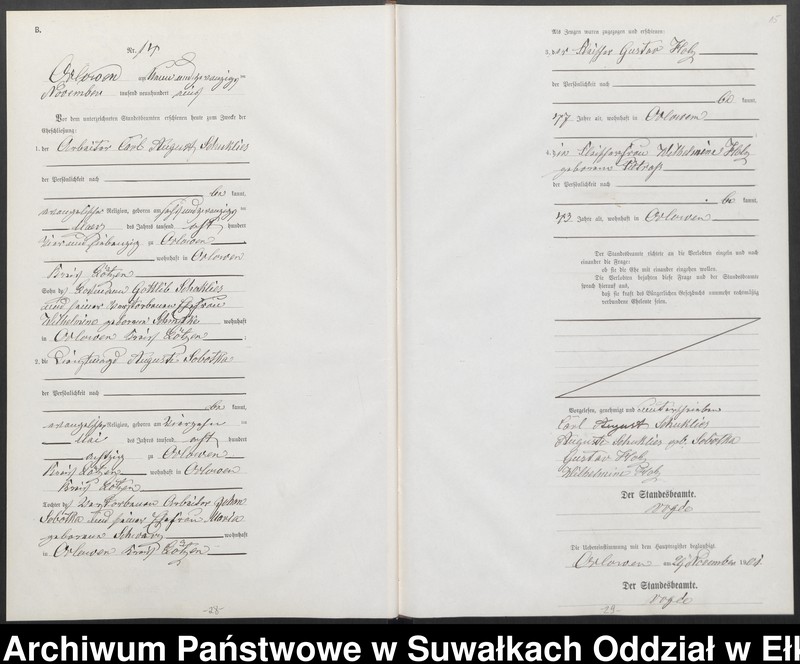 B.
Nr. 17
Orlowen am neunundzwanzig ten
November tausend neunhundert eins
Vor dem unterzeichneten Standesbeamten erschienen heute zum Zwecke der
Eheschließung:
1. der Arbeiter Carl August Schuklies
der Persönlichkeit nach
be kannt,
evangelischer Religion, geboren am sechsundzwanzig ten
März des Jahres tausend acht hundert
vierundsiebenzig zu Orlowen
wohnhaft in Orlowen
Kreis Lötzen
Sohn des Losmann Gottlieb Schuklies
und seiner verstorbenen Ehefrau
Wilhelmine geborene wohnhaft
in Orlowen Kreis Lötzen ;
2. die Dienstmagd Auguste Sobottka
der Persönlichkeit nach
be kannt,
evangelischer Religion, geboren am vierzehn ten
Mai des Jahres tausend acht hundert
achtzig zu Orlowen
Kreis Lötzen wohnhaft in Orlowen
Kreis Lötzen
Tochter des verstorbenen Arbeiter Johann
Sobottka und seiner Ehefrau Maria
geborene Schwarz wohnhaft
in Orlowen Kreis Lötzen
-28-
15
Als Zeugen waren zugezogen und erschienen:
3. der Gustav Holz
der Persönlichkeit nach
be kannt,
77 Jahre alt, wohnhaft in Orlowen ;
4. Wilhelmine Holz
geborene
der Persönlichkeit nach
be kannt,
73 Jahre alt, wohnhaft in Orlowen
Der Standesbeamte richtete an die Verlobten einzeln und nach
einander die Frage:
ob sie die Ehe mit einander eingehen wollen.
Die Verlobten bejahten diese Frage und der Standesbeamte
sprach hierauf aus,
daß sie kraft des Bürgerlichen Gesetzbuchs nunmehr rechtmäßig
verbundene Eheleute seien.
Vorgelesen, genehmigt und unterschrieben
Carl August Schuklies
Auguste Schuklies geb. Sobottka
Gustav Holz
Wilhelmine Holz
Der Standesbeamte.
Die Uebereinstimmung mit dem Hauptregister beglaubigt
Orlowen am 29 November 1901.
Der Standesbeamte.
-29-
Archiwum Państwowe w Suwałkach Oddział w Ełk